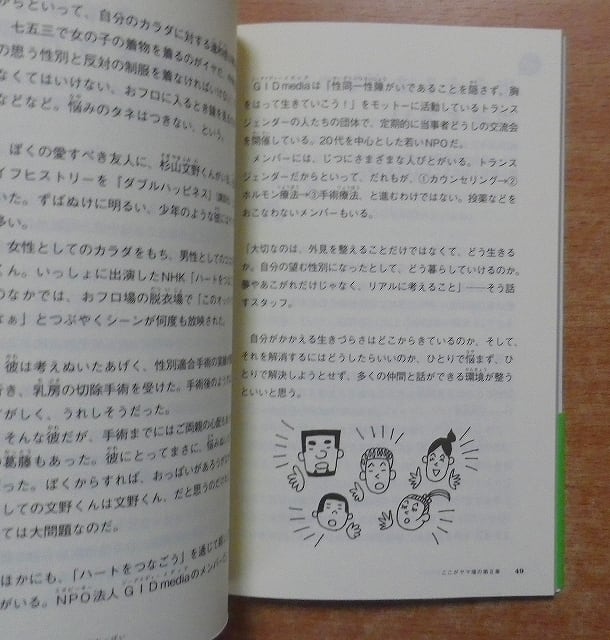 らといって、自分のカラダに対する
七五三で女の子の着物を着るのがイヤ
の思う性別と反対の制服を着なければいけない
なくてはいけない、おフロに入るとき
などなど。悩みのタネはつきない、という。
ぼくの愛すべき友人に、杉山文野くんがいる。
イフヒストリーを『ダブルハッピネス』
いた。ずばぬけに明るい、少年のような
多い。
女性としてのカラダをもち、男性としての
くん。いっしょに出演したNHK「ハートをつな
のなかでは、おフロ場の脱衣場で「このオッ
なぁ」とつぶやくシーンが何度も放映された。
彼は考えぬいたあげく、性別適合手術の
行き、乳房の切除手術を受けた。手術後の
がしく、うれしそうだった。
そんな彼だが、手術までにはご両親の心配も
葛藤もあった。彼にとってまさに、悩み
だった。ぼくからすれば、おっぱいがあろうが
しての文野くんは文野くん、だと思うのだけれど
ては大問題なのだ。
ほかにも、「ハートをつなごう」を通じて
がいる。NPO法人GID mediaのメンバー
GID mediaは「性同一性障がいであることを隠さず、胸
をはって生きていこう！」をモットーに活動しているトランス
ジェンダーの人たちの団体で、定期的に当事者どうしの交流会
を開催している。20代を中心とした若いNPOだ。
メンバーには、じつにさまざまな人びとがいる。トランス
ジェンダーだからといって、だれもが、①カウンセリング→②
ホルモン療法→③手術療法、と進むわけではない。投薬などを
おこなわないメンバーもいる。
「大切なのは、外見を整えることだけではなくて、どう生きる
か。自分の望む性別になったとして、どう暮らしていけるのか。
夢やあこがれだけじゃなく、リアルに考えること」――そう話
すスタッフ。
自分がかかえる生きづらさはどこからきているのか、そして、
それを解消するにはどうしたらいいのか、ひとりで悩まず、ひ
とりで解決しようとせず、多くの仲間と話ができる環境が整う
といいと思う。
ここがヤマ場の第2章 49